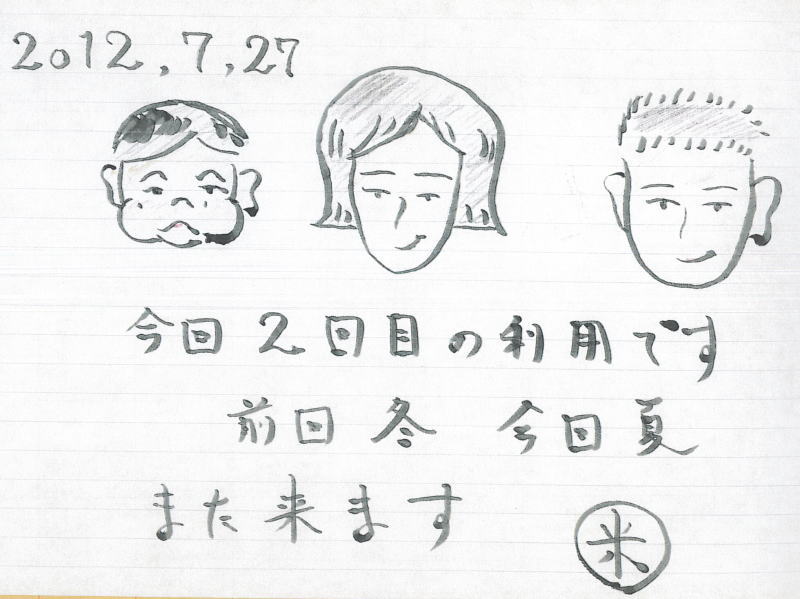 2012,7,27
今回2回目の利用です
前回冬 今回夏
また来ます
米